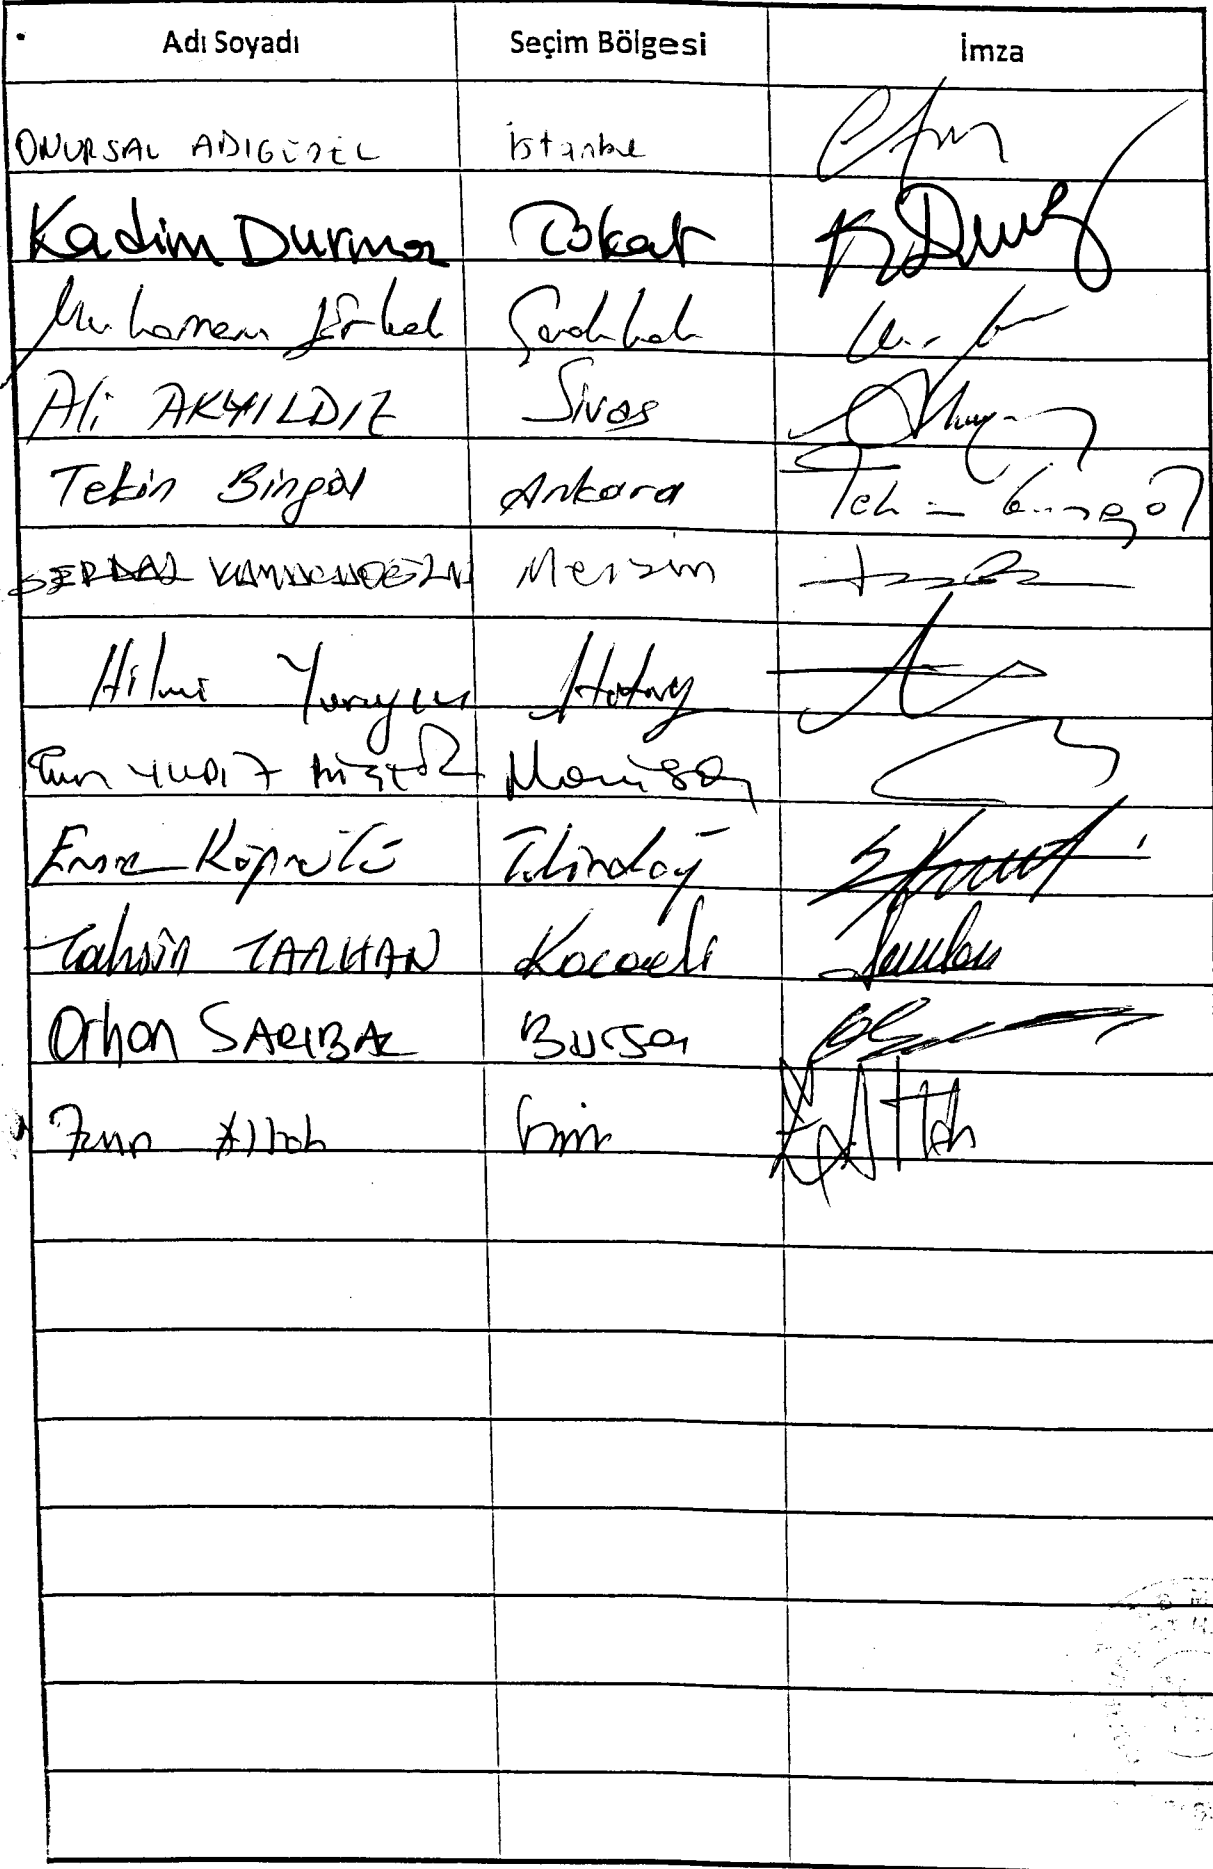 Adı Soyadı Seçim Bölgesi İmza
ONURSAL ADIGÜZEL İstanbul
Kadim Durmaz Tokat K Durmaz
Muharrem Erkek Çanakkale
Ali AKYILDIZ Sivas
Tekin Bingöl Ankara Tekin Bingöl
SERDAL KUYUCUOĞLU Mersin
Hilmi Yarayıcı Hatay
YILDIZ Manisa
Emre Köprülü Tekirdağ
Tahsin TARHAN Kocaeli
Orhan SARIBAL Bursa
Zeynep Altıok İzmir